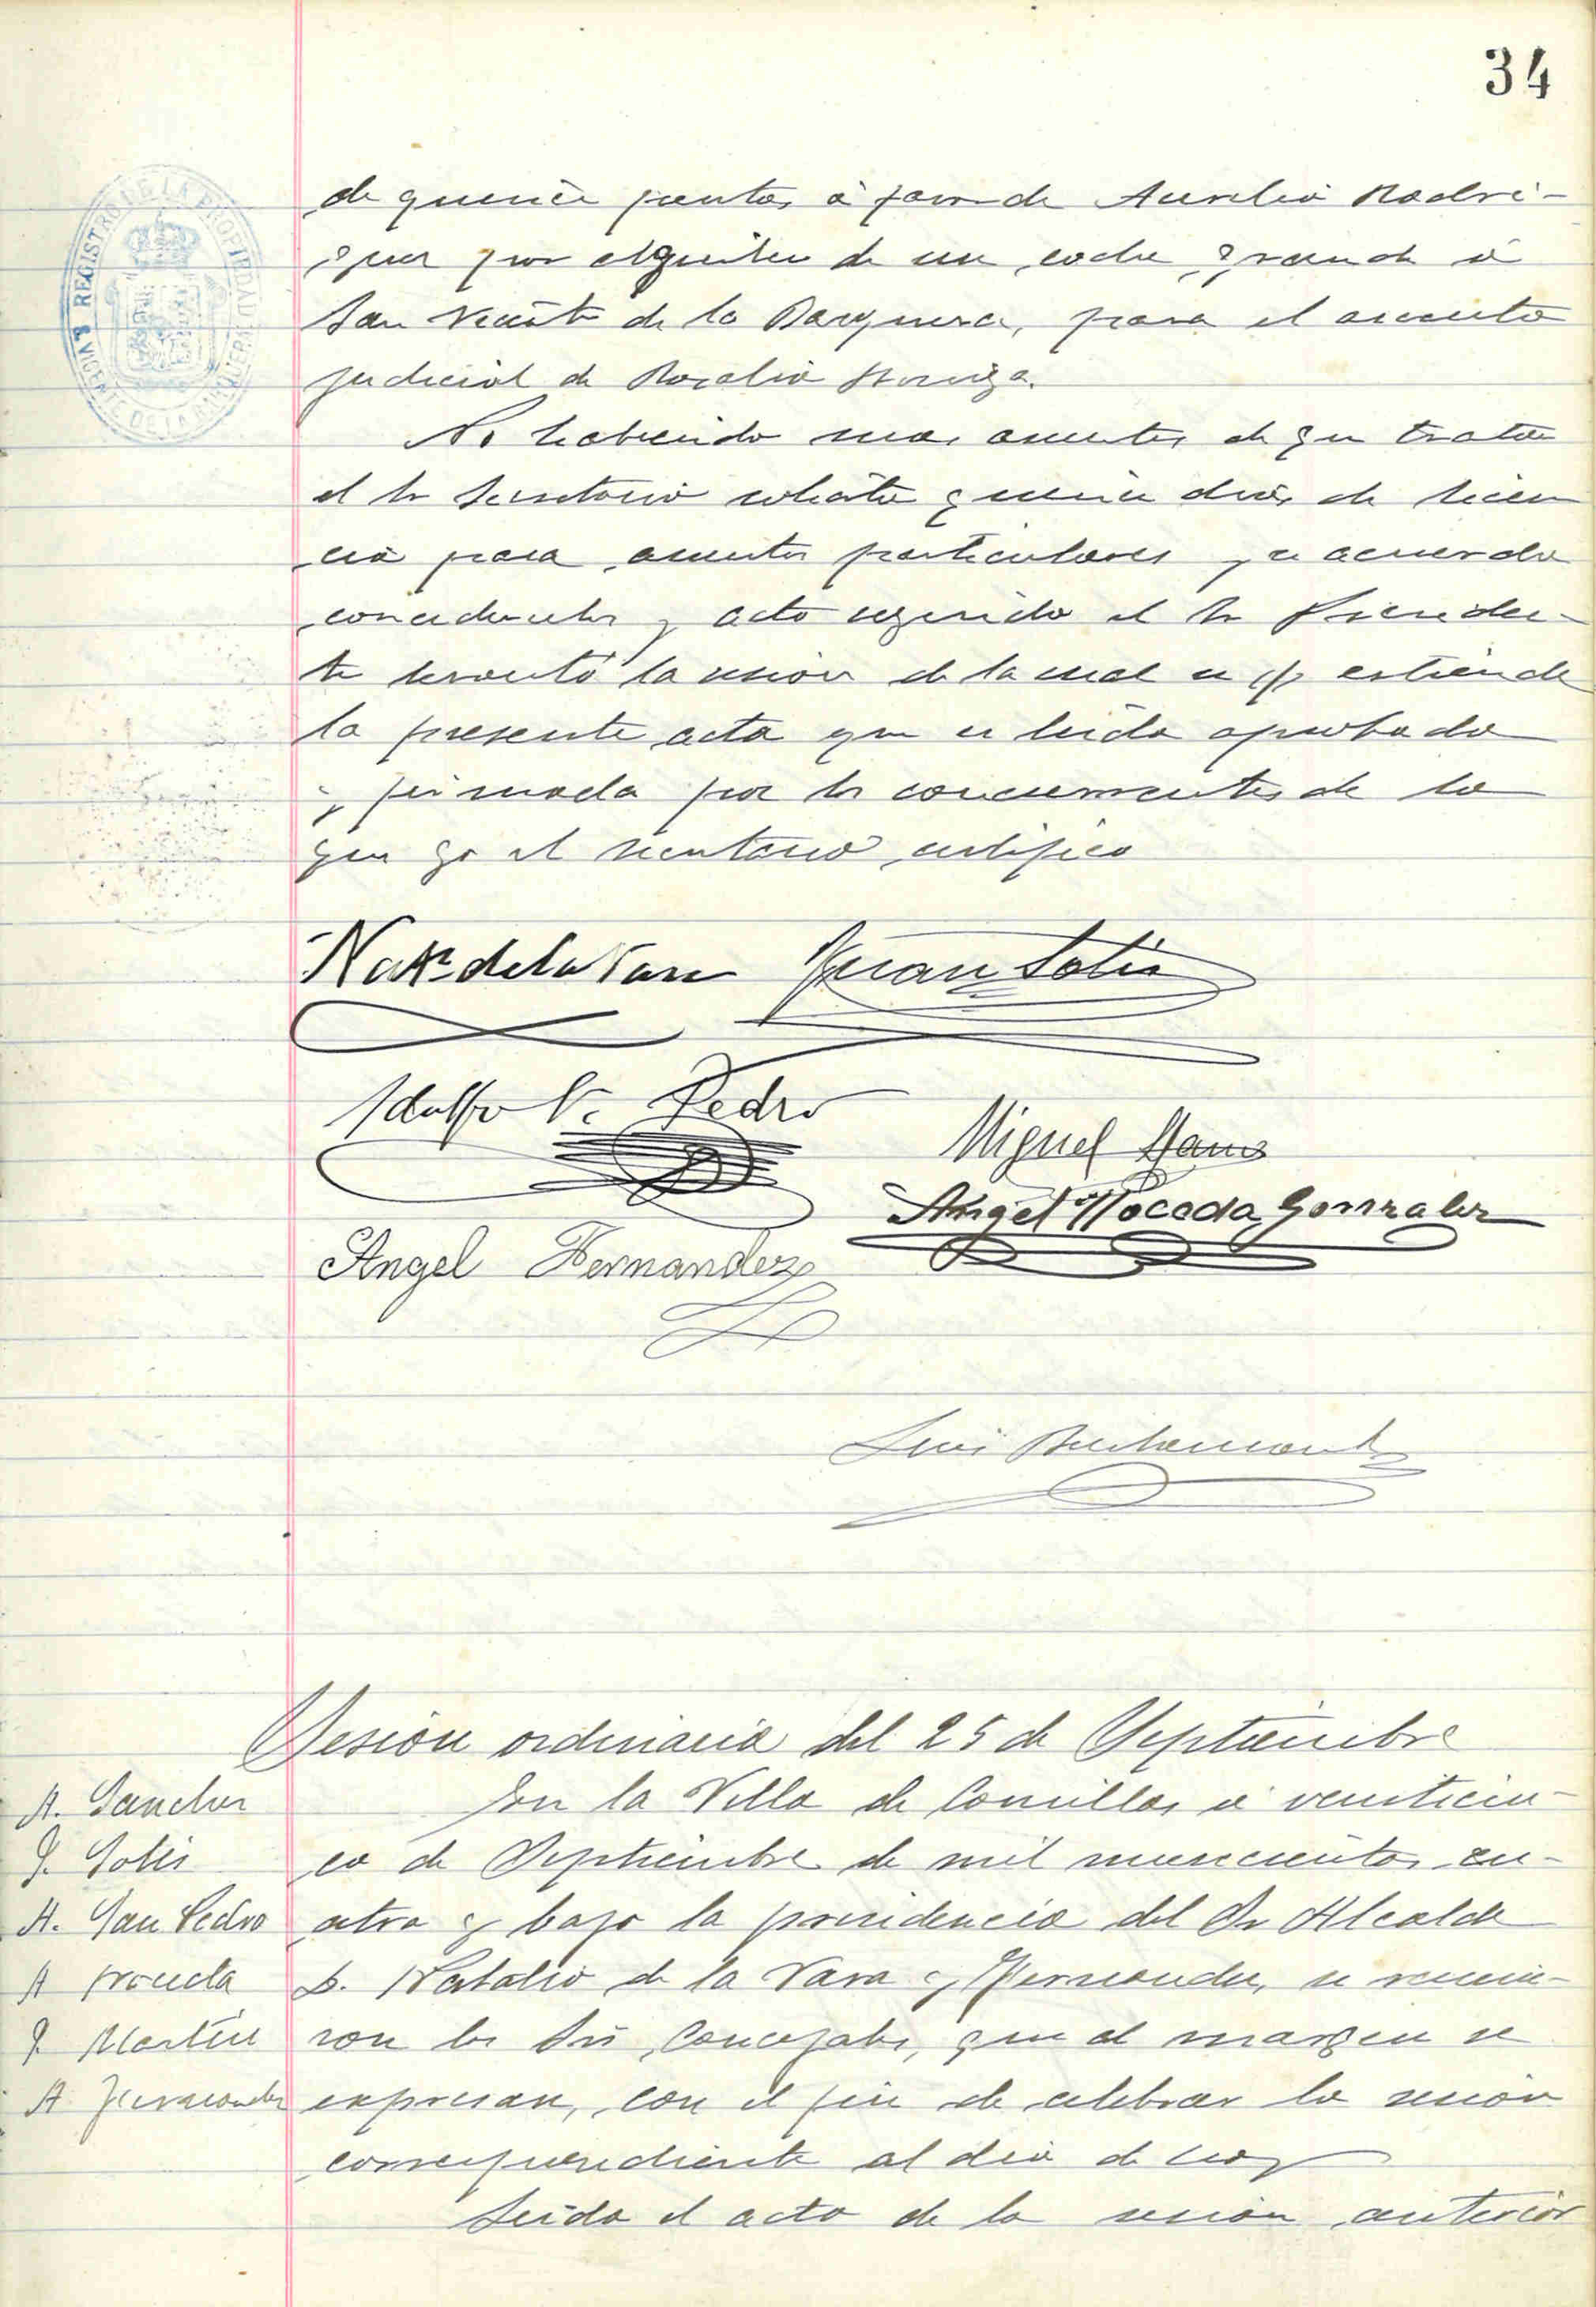 34
REGISTRO DE LA PROPIEDAD
VICENTE DE LA BARQUERA
de quince pesetas á favor de Aurelio Rodri-
guez por alquiler de un coche grande á
San Vicente de la Barquera, para el asunto
judicial de Rosalia
No habiendo mas asuntos de que tratar
el Sr Secretario solicita quince dias de licen
cia para asuntos particulares y se acuerda
concederselos y acto seguido el Sr Presiden-
te levantó la sesion de la cual se estiende
la presente acta que es leida aprobada
y firmada por los concurrentes de lo
que yo el secretario certifico
Nat.º de la Vara Juan Solis
Adolfo S. Pedro
Miguel
Angel Noceda Gonzalez
Angel Hernandez
Luis Bustamante
Sesion ordinaria del 25 de Septiembre
A. Sanchez
J. Solis
A. San Pedro
A Noceda
J Martin
A Hernandez
En la Villa de Comillas á veinticin-
co de Septiembre de mil novecientos cu-
atro y bajo la presidencia del Sr Alcalde
D. Natalio de la Vara y Hernandez, se reunie-
ron los Srs Concejales, que al margen se
expresan, con el fin de celebrar la sesion
correspondiente al dia de hoy
Leida el acta de la sesion anterior